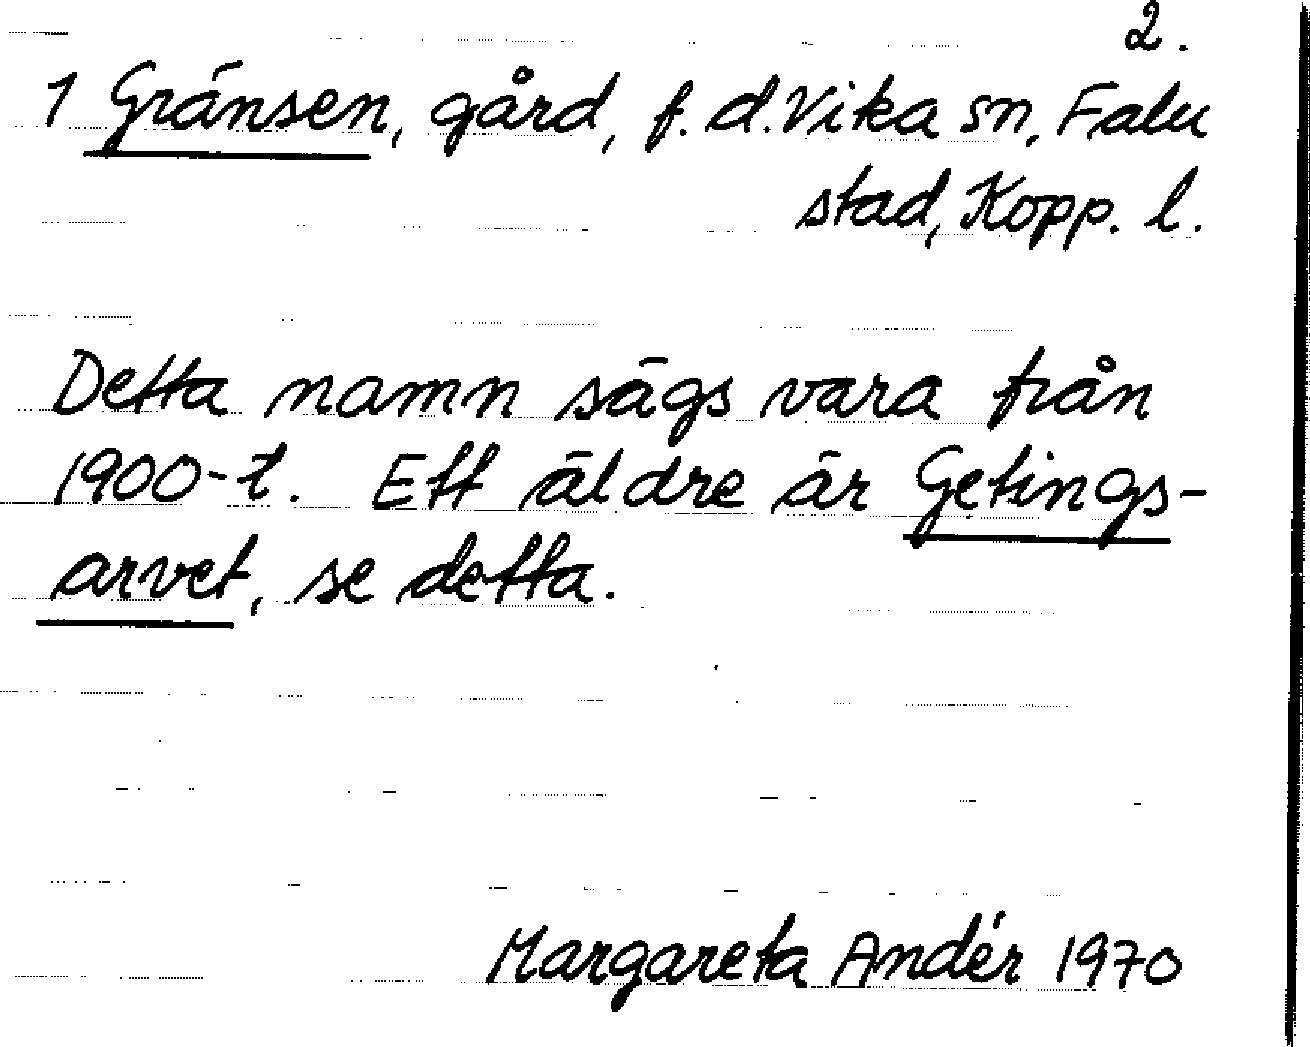 2.
1 Gränsen, gård, f. d. Vika sn, Falu
stad, Kopp. l.
Detta namn sägs vara från
1900-t. Ett äldre är Getings-
arvet, se detta.
Margareta Andér 1970